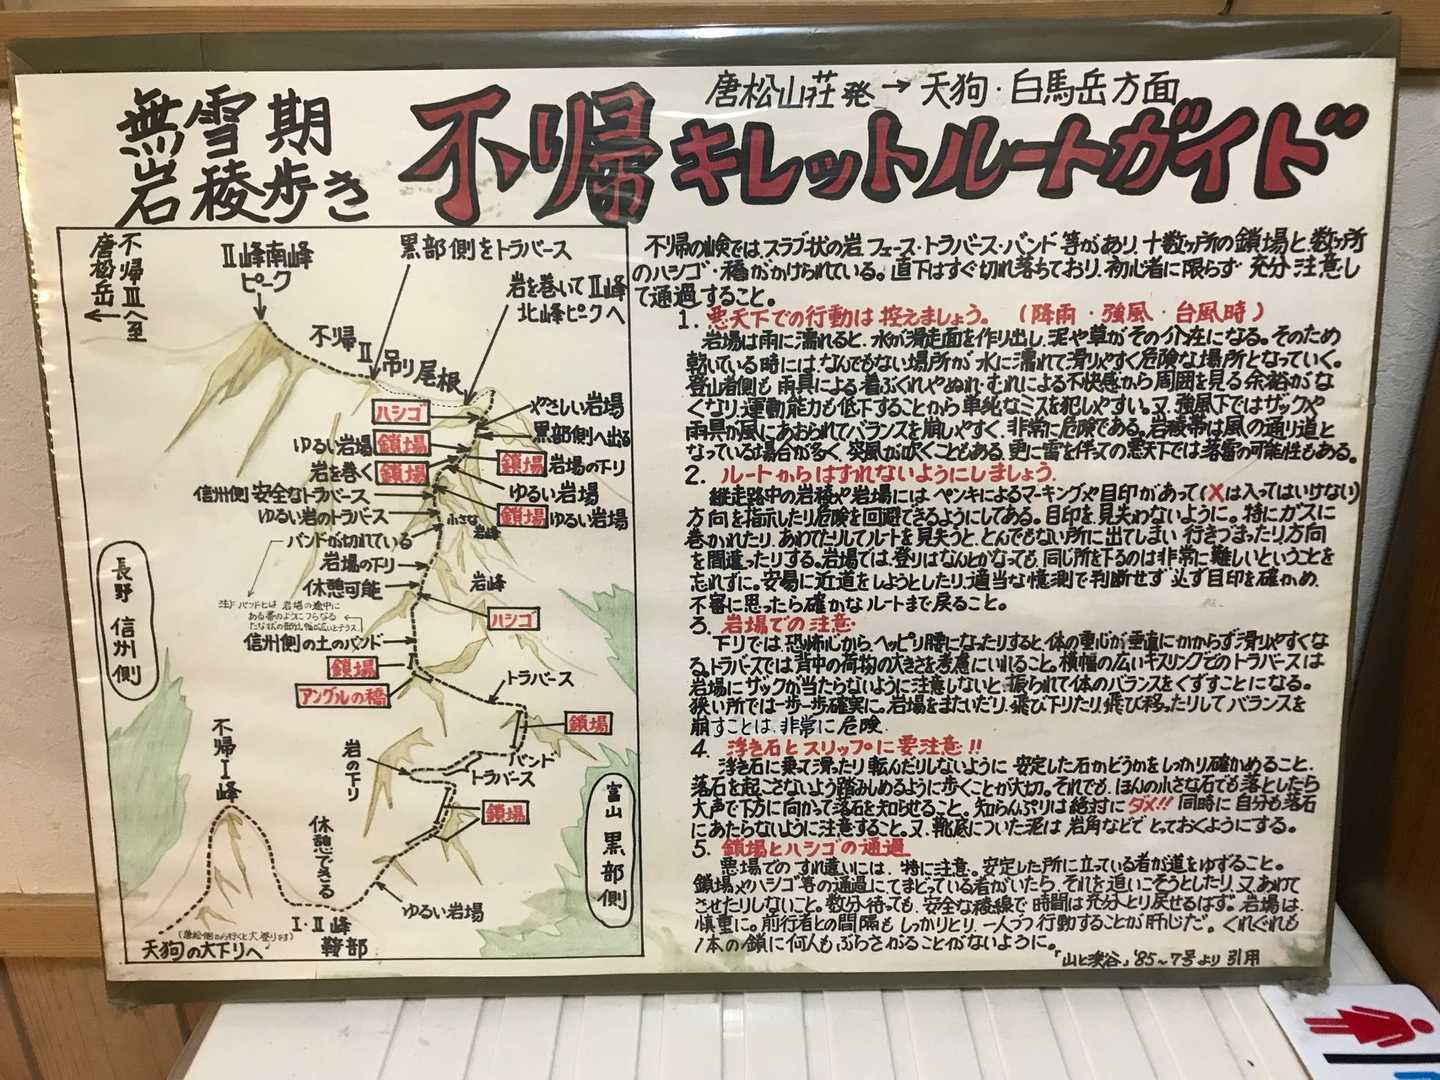 無雪期
岩稜歩き
唐松山荘発→天狗・白馬岳方面
不帰キレットルートガイド
不帰Ⅲへ至
唐松岳
Ⅱ峰南峰
ピーク
黒部側をトラバース
岩を巻いてⅡ峰
北峰ピークへ
不帰Ⅱ吊り尾根
ハシゴ
やさしい岩場
黒部側へ出る
ゆるい岩場
鎖場
岩を巻く
鎖場
鎖場
岩場の下り
信州側安全なトラバース
ゆるい岩場
ゆるい岩のトラバース
小さな
岩峰
鎖場
ゆるい岩場
バンドが切れている
岩場の下り
休憩可能
岩峰
ハシゴ
注)バンドとは 岩場の途中に
ある帯のようにつらなる
たな状の部分。幅が広いとテラス
信州側の土のバンド
鎖場
アングルの橋
トラバース
鎖場
長野 信州側
不帰Ⅰ峰
岩の下り
バンド
トラバース
鎖場
富山 黒部側
休憩できる
ゆるい岩場
Ⅰ・Ⅱ峰
鞍部
(唐松側から行くと大登ります)
天狗の大下りへ
不帰の嶮では、スラブ状の岩、フェース・トラバース・バンド等があり、十数ヶ所の鎖場と、数ヶ所
のハシゴ・橋がかけられている。直下はすぐ切れ落ちており、初心者に限らず 充分注意し
て通過すること。
1. 悪天下での行動は控えましょう。(降雨・強風・台風時)
岩場は雨に濡れると、水が滑走面を作り出し、泥や草がその介在になる。そのため
乾いている時にはなんでもない場所が水に濡れて滑りやすく危険な場所となっていく。
登山者側も雨具による着ぶくれやぬれ・むれによる不快感から周囲を見る余裕がな
くなり、運動能力も低下することから単純なミスを犯しやすい。又、強風下ではザックや
雨具が風にあおられてバランスを崩しやすく、非常に危険である。岩稜帯は風の通り道と
なっている場合が多く、突風が吹くこともある。更に雷を伴っての悪天下では落雷の可能性もある。
2. ルートからはずれないようにしましょう。
縦走路中の岩稜や岩場には、ペンキによるマーキングや目印があって(×は入ってはいけない)
方向を指示したり危険を回避できるようにしてある。目印を見失わないように。特にガスに
巻かれたり、あわてたりしてルートを見失うと、とんでもない所に出てしまい 行きづまったり、方向
を間違ったりする。岩場では、登りはなんとかなっても、同じ所を下るのは非常に難しいということを
忘れずに。安易に近道をしようとしたり、適当な憶測で判断せず 必ず目印を確かめ、
不審に思ったら確かなルートまで戻ること。
3. 岩場での注意
下りでは恐怖心からヘッピリ腰になったりすると、体の重心が垂直にかからず滑りやすくな
る。トラバースでは背中の荷物の大きさを考慮にいれること。横幅の広いキスリングでのトラバースは
岩場にザックが当たらないように注意しないと、振られて体のバランスをくずすことになる。
狭い所では一歩一歩確実に。岩場をまたいだり、飛び下りたり、飛び移ったりしてバランスを
崩すことは、非常に危険
4. 浮き石とスリップに要注意!!
浮き石に乗って滑ったり転んだりしないように 安定した石かどうかをしっかり確かめること。
落石を起こさないよう踏みしめるように歩くことが大切。それでも、ほんの小さな石でも落としたら
大声で下方に向かって落石を知らせること。知らんぷりは絶対にダメ!!同時に自分も落石
にあたらないように注意すること。又、靴底についた泥は岩角などでとっておくようにする。
5. 鎖場とハシゴの通過
悪場でのすれ違いには、特に注意。安定した所に立っている者が道をゆずること。
鎖場やハシゴ等の通過にてまどっている者がいたら、それを追いこそうとしたり、又あわて
させたりしないこと。数分待っても、安全な稜線で時間は充分とり戻せるはず。岩場は、
慎重に。前行者との間隔もしっかりとり、一人づつ行動することが肝じだ。くれぐれも
1本の鎖に何人もぶらさがることがないように。
「山と溪谷」'85~7号より引用